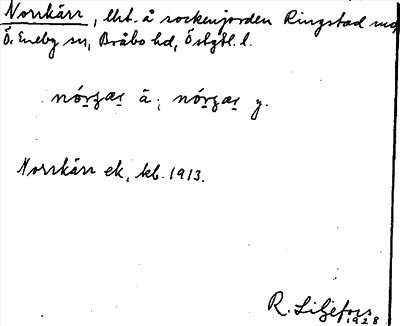 Norrkärr, lht. å sockenjorden Ringstad
Ö. Eneby sn, Bråbo hd, Östgtl. l.
ä; y.
Norrkärr ek, kb. 1913.
R. Liljefors
1928